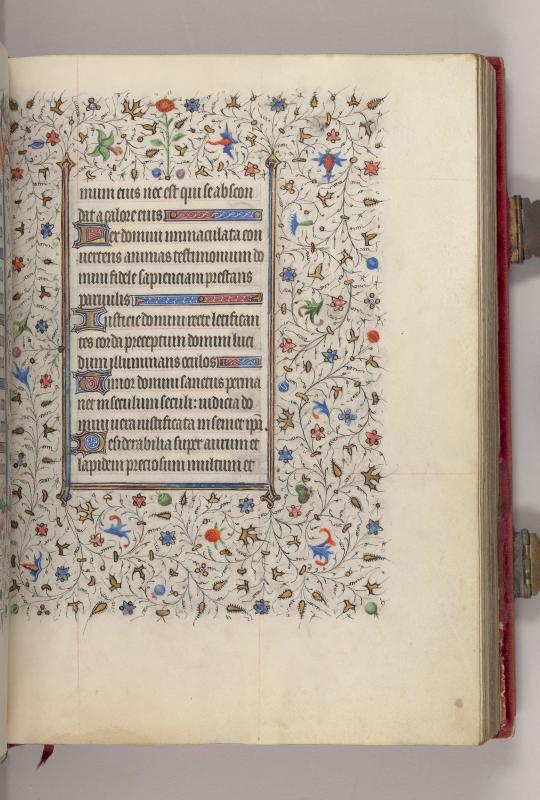 mum eius nec est qui se abscon
dit a calore eius
Lex domini inmaculata con
uertens animas testimonium do
mini fidele sapienciam prestans
paruulis
Iusticie domini recte letifican
tes corda preceptum domini luci
dum illuminans oculos
Timor domini sanctus perma
net in seculum seculi: iudicia do
mini uera iustificata in semetip̄a.
Desiderabilia super aurum et
lapidem preciosum multum et